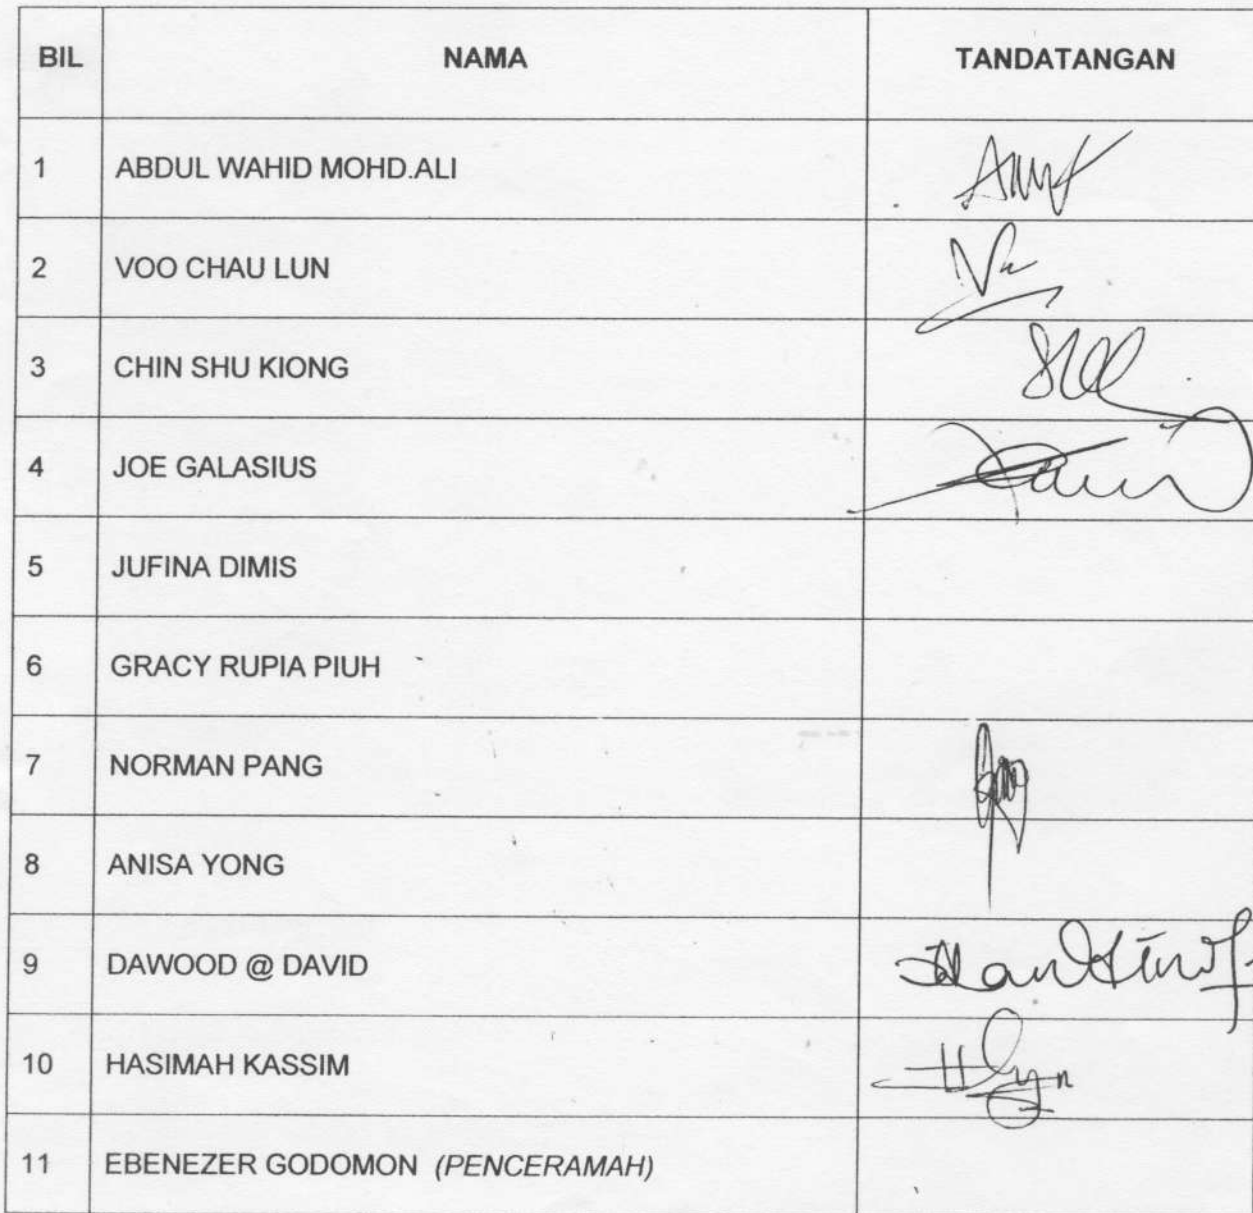 BIL NAMA TANDATANGAN
1 ABDUL WAHID MOHD.ALI
2 VOO CHAU LUN
3 CHIN SHU KIONG
4 JOE GALASIUS
5 JUFINA DIMIS
6 GRACY RUPIA PIUH
7 NORMAN PANG
8 ANISA YONG
9 DAWOOD @ DAVID
10 HASIMAH KASSIM
11 EBENEZER GODOMON (PENCERAMAH)